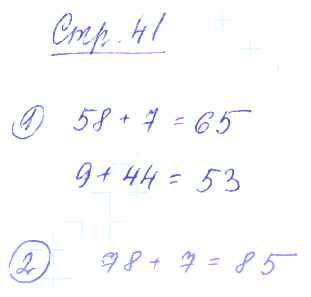 Стр. 41
1) 58 + 7 = 65
9 + 44 = 53
2) 78 + 7 = 85